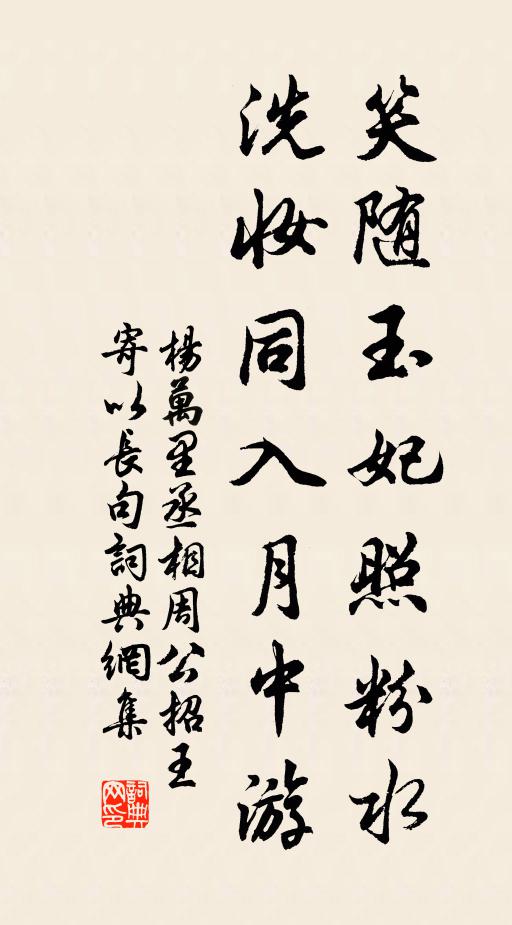 笑随玉妃照粉水
洗妆同入月中游
楊萬里丞相周公招王
寄以長句詞典網集
詞典网印